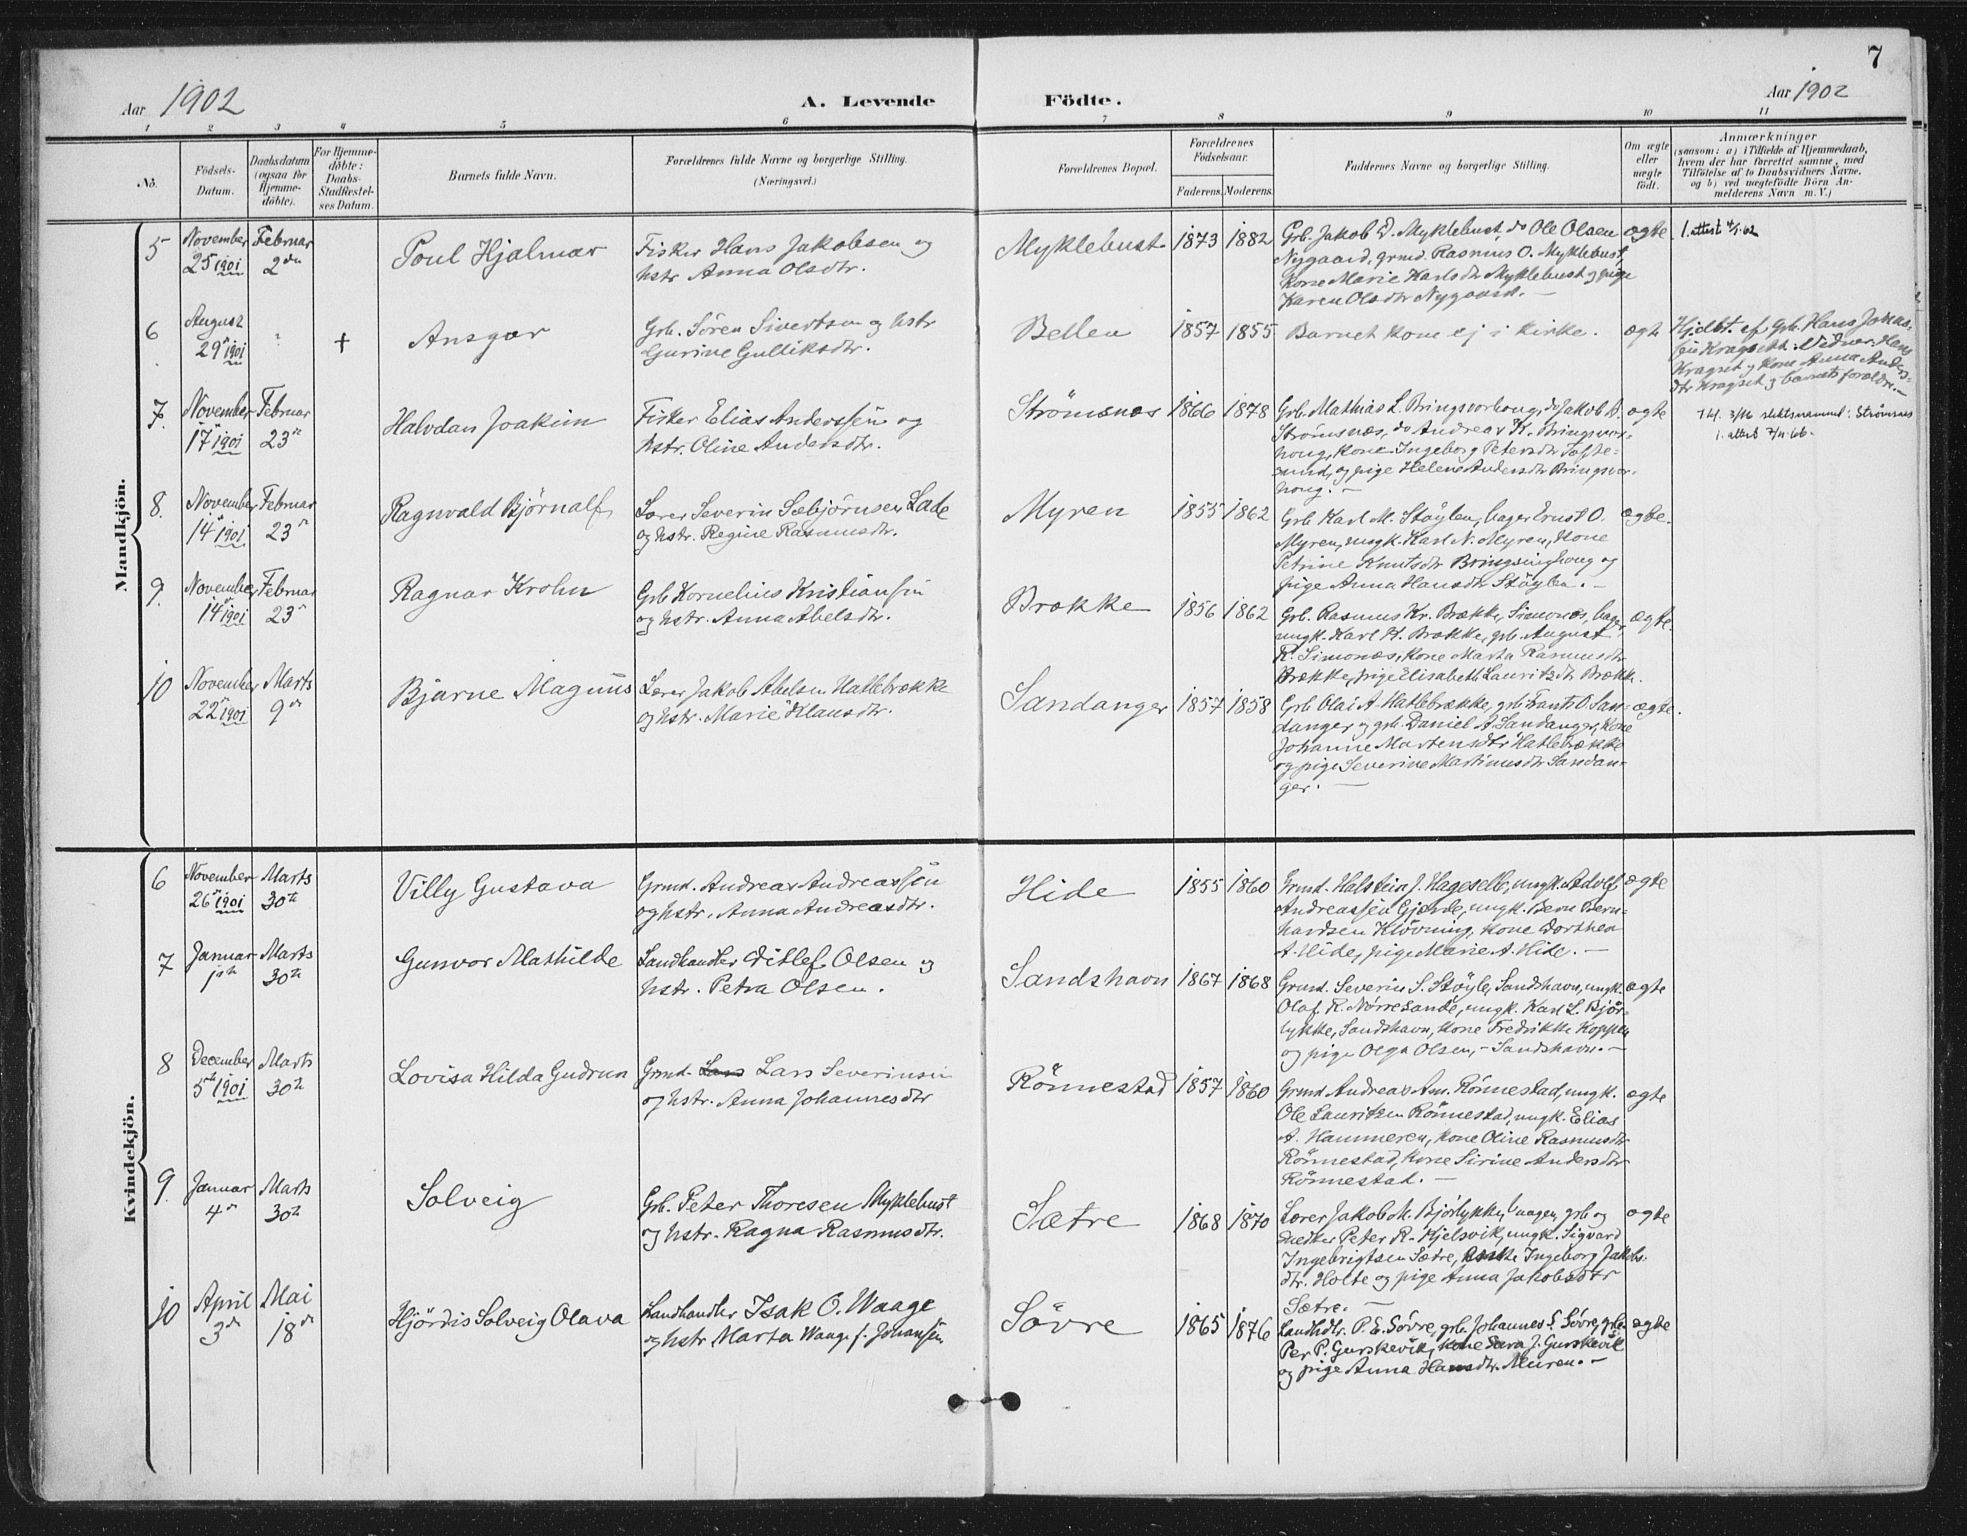 7
Aar 1902
A. Levende Födte.
Aar 1902
1 2 3 4 5 6 7 8 9 10 11
No.
Födsels-
Datum.
Daabsdatum
(ogsaa for
Hjemme-
döbte).
For Hjemme-
döbte:
Daabs-
Stadfæstel-
ses Datum.
Barnets fulde Navn.
Forældrenes fulde Navne og borgerlige Stilling.
(Næringsvei.)
Forældrenes Bopæl.
Forældrenes
Födselsaar.
Faderens. Moderens.
Faddernes Navne og borgerlige Stilling.
Om ægte
eller
uægte
födt.
Anmærkninger
(saasom: a) i Tilfælde af Hjemmedaab,
hvem der har forrettet samme, med
Tilföielse af to Daabsvidners Navne,
og b) ved uægtefödte Börn An-
melderens Navn m. V.)
Mandkjön.
5
November
25 1901
Februar
2den
Poul Hjalmar
Fisker Hans Jakobsen og
hstr. Anna Olsdtr.
Myklebust
1873 1882
Grb. Jakob E. Myklebust, do Ole Olsen
Nygaard, grmd. Rasmus O. Myklebust,
kone Marie Karlsdtr Myklebust og pige
Karen Olsdtr Nygaard.
ægte
6
August
29 1901
+
Ansgar
Grb. Sören Sivertsen og hstr
Gurine Gulliksdtr.
Bellen
1857 1855
Barnet kom ej i kirke.
ægte
Hjdbt. af Grb. Hans
Kragset og kone Anna Anders-
dtr Kragset og barnets forældre.
7.
November
17 1901
Februar
23
Halvdan Joakim
Fisker Elias Anderssen og
hstr. Oline Andersdtr.
Strömsnæs
1866 1878
Grb. Mathias L. Bringsvorhoug, do Jakob A.
Strömsnæs, do Andreas K. Bringsvor-
houg, kone Ingeborg Petersdtr Tofte-
sund, og pige Helene Andersdtr Bringsvor-
houg.
ægte
slektsnavnet: Strömsnes
8.
November
14 1901
Februar
23
Ragnvald Bjørnalf
Lærer Severin Sæbjörnsen Lade
og hstr. Regine Rasmusdtr.
Myren
1855 1862
Grb. Karl M. Støylen, bager Ernst O.
Myren, ungk. Karl N. Myren, kone
Petrine Knutsdtr Bringsinghoug og
pige Anna Hansdtr Støylen.
ægte.
9.
November
14 1901
Februar
23
Ragnar Krohn
Grb Kornelius Kristiansen
og hstr. Anna Abelsdtr.
Brække
1856 1862
Grb. Rasmus Kr. Brække, Simonæs, bager,
ungk. Karl H. Brække, grb. August
R. Simonæs, kone Marta Rasmusdtr
Brække, pige Elisabeth Lauritsdtr Brække.
ægte.
10
November
22 1901
Marts
9de
Bjarne Magnus
Lærer Jakob Abelsen Hatlebrække
og hstr. Marie Klausdtr.
Sandanger
1857 1858
Grb Olai A. Hatlebrække, grb. Frants O. San-
danger og grb. Daniel A. Sandanger, kone
Johanne Martensdtr Hatlebrække
og pige Severine Martinusdtr Sandan-
ger.
ægte.
Kvindekjön.
6
November
26 1901
Marts
30te
Villy Gustava
Grmd. Andreas Andreassen
og hstr. Anna Andreasdtr.
Hide
1855 1860
Grmd. Halstein J. Hageselb, ungk. Adolf
Andreassen Gjerde, ungk. Bern Bern-
hardsen Klövning, kone Dorthea
A. Hide, pige Marie A. Hide.
ægte
7
Januar
1ste
Marts
30te
Gunvor Mathilde
Landhandler Ditlef Olsen og
hstr. Petra Olsen.
Sandshavn
1867 1868
Grmd. Severin S. Støyle, Sandshavn, ungk.
Olaf R. Nörresande, ungk. Karl L. Bjør-
lykke, Sandshavn, kone Fredrikke Koppen
og pige Olga Olsen, Sandshavn.
ægte
8
December
5te 1901
Marts
30te
Lovisa Hilda Gudrun
Grmd. Lars Lars Severinsen
og hstr. Anna Johannesdtr
Rönnestad
1857 1860
Grmd Andreas Am. Rönnestad, ungk.
Ole Lauritzen Rönnestad, ungk. Elias
A. Hammeren, kone Oline Rasmusdtr
Rönnestad, kone Sirine Andersdtr
Rönnestad.
ægte
9.
Januar
4de
Marts
30te
Solveig
Grb. Peter Thoresen Myklebust
og hstr. Ragna Rasmusdtr.
Sætre
1868 1870
Lærer Jakob M. Bjørlykke, grb og
snedker Peter R. Hjelsvik, ungk. Sigvard
Ingebrigtsen Sætre, Ingeborg Jakobs-
dtr. Holte og pige Anna Jakobsdtr
Sætre.
ægte
10
April
3de
Mai
18de
Hjördis Solveig Olava
Landhandler Isak O. Waage
og hstr. Marta Waage f. Johansen
Sövre
1865 1876
Landhdlr. P. E. Sövre, grb. Johannes S. Sövre, grb.
Per P. Gurskevik, kone Sara J. Gurskevik
og pige Anna Hansdtr. Muren.
ægte